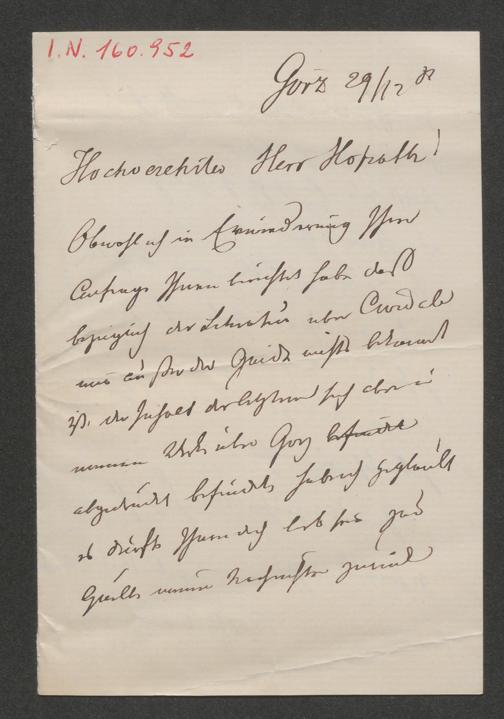 I.N. 160.952
Görz 29/12 81
Hochverehrter Herr Hofrath!
Obwohl ich in Erwiederung Ihrer
Anfrage Ihnen berichtet habe daß
bezüglich der Literatur über Cividale
mir außer der Guida nichts bekannt
ist, der Inhalt der letztern sich aber in
meinem Werk über Görz befindet
abgedruckt befindet, habe ich geglaubt
es dürfte Ihnen doch lieb sein zur
Quelle meiner Nachrichten zurück